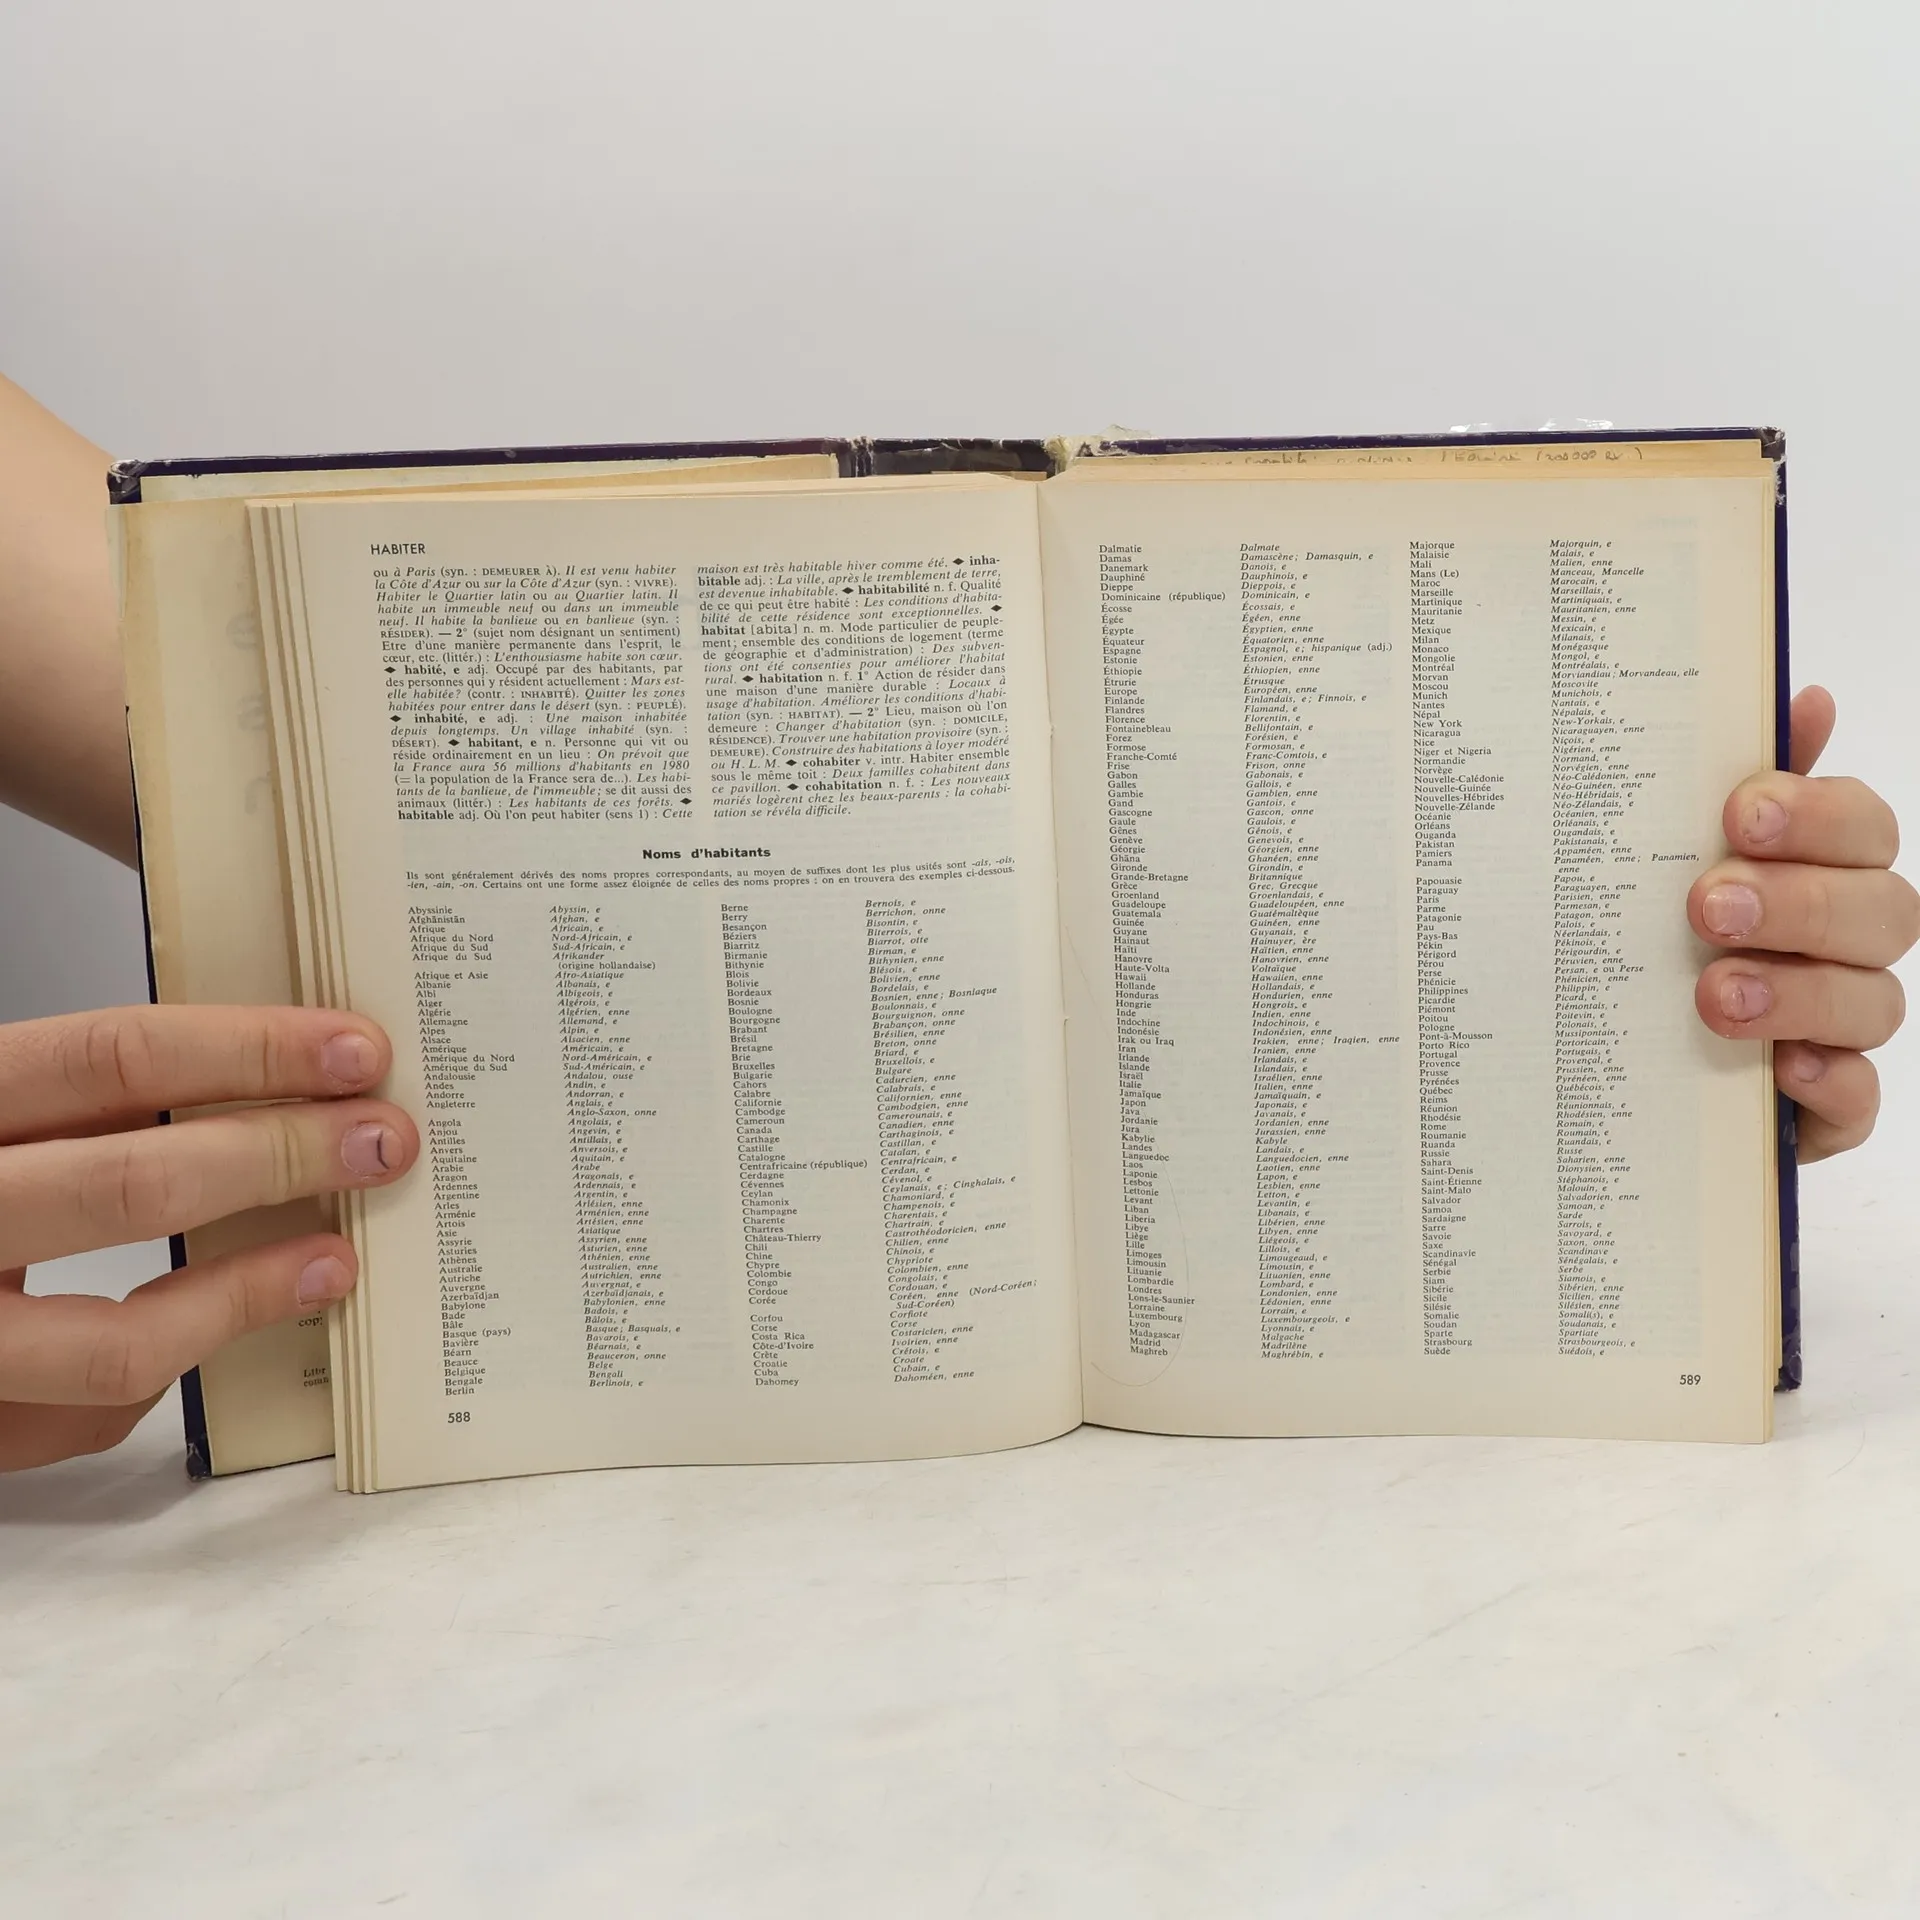 HABITER
ou à Paris (syn. : DEMEURER À). Il est venu habiter
la Côte d'Azur ou sur la Côte d'Azur (syn. : VIVRE).
Habiter le Quartier latin ou au Quartier latin. Il
habite un immeuble neuf ou dans un immeuble
neuf. Il habite la banlieue ou en banlieue (syn. :
RÉSIDER). — 2° (sujet nom désignant un sentiment)
Etre d'une manière permanente dans l'esprit, le
cœur, etc. (littér.) : L'enthousiasme habite son cœur.
◆ habité, e adj. Occupé par des habitants, par
des personnes qui y résident actuellement : Mars est-
elle habitée? (contr. : INHABITÉ). Quitter les zones
habitées pour entrer dans le désert (syn. : PEUPLÉ).
◆ inhabité, e adj. : Une maison inhabitée
depuis longtemps. Un village inhabité (syn. :
DÉSERT). ◆ habitant, e n. Personne qui vit ou
réside ordinairement en un lieu : On prévoit que
la France aura 56 millions d'habitants en 1980
(= la population de la France sera de...). Les habi-
tants de la banlieue, de l'immeuble; se dit aussi des
animaux (littér.) : Les habitants de ces forêts. ◆
habitable adj. Où l'on peut habiter (sens 1) : Cette
maison est très habitable hiver comme été. ◆ inha-
bitable adj. : La ville, après le tremblement de terre,
est devenue inhabitable. ◆ habitabilité n. f. Qualité
de ce qui peut être habité : Les conditions d'habita-
bilité de cette résidence sont exceptionnelles. ◆
habitat [abita] n. m. Mode particulier de peuple-
ment; ensemble des conditions de logement (terme
de géographie et d'administration) : Des subven-
tions ont été consenties pour améliorer l'habitat
rural. ◆ habitation n. f. 1° Action de résider dans
une maison d'une manière durable : Locaux à
usage d'habitation. Améliorer les conditions d'habi-
tation (syn. : HABITAT). — 2° Lieu, maison où l'on
demeure : Changer d'habitation (syn. : DOMICILE,
RÉSIDENCE). Trouver une habitation provisoire (syn. :
DEMEURE). Construire des habitations à loyer modéré
ou H. L. M. ◆ cohabiter v. intr. Habiter ensemble
sous le même toit : Deux familles cohabitent dans
ce pavillon. ◆ cohabitation n. f. : Les nouveaux
mariés logèrent chez les beaux-parents : la cohabi-
tation se révéla difficile.
Noms d'habitants
Ils sont généralement dérivés des noms propres correspondants, au moyen de suffixes dont les plus usités sont -ais, -ois,
-ien, -ain, -on. Certains ont une forme assez éloignée de celles des noms propres : on en trouvera des exemples ci-dessous.
Abyssinie Abyssin, e
Afghānistān Afghan, e
Afrique Africain, e
Afrique du Nord Nord-Africain, e
Afrique du Sud Sud-Africain, e
Afrique du Sud Afrikander
(origine hollandaise)
Afrique et Asie Afro-Asiatique
Albanie Albanais, e
Albi Albigeois, e
Alger Algérois, e
Algérie Algérien, enne
Allemagne Allemand, e
Alpes Alpin, e
Alsace Alsacien, enne
Amérique Américain, e
Amérique du Nord Nord-Américain, e
Amérique du Sud Sud-Américain, e
Andalousie Andalou, ouse
Andes Andin, e
Andorre Andorran, e
Angleterre Anglais, e
Anglo-Saxon, onne
Angola Angolais, e
Anjou Angevin, e
Antilles Antillais, e
Anvers Anversois, e
Aquitaine Aquitain, e
Arabie Arabe
Aragon Aragonais, e
Ardennes Ardennais, e
Argentine Argentin, e
Arles Arlésien, enne
Arménie Arménien, enne
Artois Artésien, enne
Asie Asiatique
Assyrie Assyrien, enne
Asturies Asturien, enne
Athènes Athénien, enne
Australie Australien, enne
Autriche Autrichien, enne
Auvergne Auvergnat, e
Azerbaïdjan Azerbaïdjanais, e
Babylone Babylonien, enne
Bade Badois, e
Bâle Bâlois, e
Basque (pays) Basque; Basquais, e
Bavière Bavarois, e
Béarn Béarnais, e
Beauce Beauceron, onne
Belgique Belge
Bengale Bengali
Berlin Berlinois, e
Berne Bernois, e
Berry Berrichon, onne
Besançon Bisontin, e
Béziers Biterrois, e
Biarritz Biarrot, otte
Birmanie Birman, e
Bithynie Bithynien, enne
Blois Blésois, e
Bolivie Bolivien, enne
Bordeaux Bordelais, e
Bosnie Bosnien, enne; Bosniaque
Boulogne Boulonnais, e
Bourgogne Bourguignon, onne
Brabant Brabançon, onne
Brésil Brésilien, enne
Bretagne Breton, onne
Brie Briard, e
Bruxelles Bruxellois, e
Bulgarie Bulgare
Cahors Cadurcien, enne
Calabre Calabrais, e
Californie Californien, enne
Cambodge Cambodgien, enne
Cameroun Camerounais, e
Canada Canadien, enne
Carthage Carthaginois, e
Castille Castillan, e
Catalogne Catalan, e
Centrafricaine (république) Centrafricain, e
Cerdagne Cerdan, e
Cévennes Cévenol, e
Ceylan Ceylanais, e; Cinghalais, e
Chamonix Chamoniard, e
Champagne Champenois, e
Charente Charentais, e
Chartres Chartrain, e
Château-Thierry Castrothéodoricien, enne
Chili Chilien, enne
Chine Chinois, e
Chypre Chypriote
Colombie Colombien, enne
Congo Congolais, e
Cordoue Cordouan, e
Corée Coréen, enne (Nord-Coréen;
Sud-Coréen)
Corfou Corfiote
Corse Corse
Costa Rica Costaricien, enne
Côte-d'Ivoire Ivoirien, enne
Crète Crétois, e
Croatie Croate
Cuba Cubain, e
Dahomey Dahoméen, enne
588
Dalmatie Dalmate
Damas Damascène; Damasquin, e
Danemark Danois, e
Dauphiné Dauphinois, e
Dieppe Dieppois, e
Dominicaine (république) Dominicain, e
Écosse Écossais, e
Égée Égéen, enne
Égypte Égyptien, enne
Équateur Équatorien, enne
Espagne Espagnol, e; hispanique (adj.)
Estonie Estonien, enne
Éthiopie Éthiopien, enne
Étrurie Étrusque
Europe Européen, enne
Finlande Finlandais, e; Finnois, e
Flandres Flamand, e
Florence Florentin, e
Fontainebleau Bellifontain, e
Forez Forésien, e
Formose Formosan, e
Franche-Comté Franc-Comtois, e
Frise Frison, onne
Gabon Gabonais, e
Galles Gallois, e
Gambie Gambien, enne
Gand Gantois, e
Gascogne Gascon, onne
Gaule Gaulois, e
Gênes Génois, e
Genève Genevois, e
Géorgie Géorgien, enne
Ghâna Ghanéen, enne
Gironde Girondin, e
Grande-Bretagne Britannique
Grèce Grec, Grecque
Groenland Groenlandais, e
Guadeloupe Guadeloupéen, enne
Guatemala Guatémaltèque
Guinée Guinéen, enne
Guyane Guyanais, e
Hainaut Hainuyer, ère
Haïti Haïtien, enne
Hanovre Hanovrien, enne
Haute-Volta Voltaïque
Hawaii Hawaïen, enne
Hollande Hollandais, e
Honduras Hondurien, enne
Hongrie Hongrois, e
Inde Indien, enne
Indochine Indochinois, e
Indonésie Indonésien, enne
Irak ou Iraq Irakien, enne; Iraqien, enne
Iran Iranien, enne
Irlande Irlandais, e
Islande Islandais, e
Israël Israélien, enne
Italie Italien, enne
Jamaïque Jamaïquain, e
Japon Japonais, e
Java Javanais, e
Jordanie Jordanien, enne
Jura Jurassien, enne
Kabylie Kabyle
Landes Landais, e
Languedoc Languedocien, enne
Laos Laotien, enne
Laponie Lapon, e
Lesbos Lesbien, enne
Lettonie Letton, e
Levant Levantin, e
Liban Libanais, e
Liberia Libérien, enne
Libye Libyen, enne
Liège Liégeois, e
Lille Lillois, e
Limoges Limougeaud, e
Limousin Limousin, e
Lituanie Lituanien, enne
Lombardie Lombard, e
Londres Londonien, enne
Lons-le-Saunier Lédonien, enne
Lorraine Lorrain, e
Luxembourg Luxembourgeois, e
Lyon Lyonnais, e
Madagascar Malgache
Madrid Madrilène
Maghreb Maghrébin, e
Majorque Majorquin, e
Malaisie Malais, e
Mali Malien, enne
Mans (Le) Manceau, Mancelle
Maroc Marocain, e
Marseille Marseillais, e
Martinique Martiniquais, e
Mauritanie Mauritanien, enne
Metz Messin, e
Mexique Mexicain, e
Milan Milanais, e
Monaco Monégasque
Mongolie Mongol, e
Montréal Montréalais, e
Morvan Morviandiau; Morvandeau, elle
Moscou Moscovite
Munich Munichois, e
Nantes Nantais, e
Népal Népalais, e
New York New-Yorkais, e
Nicaragua Nicaraguayen, enne
Nice Niçois, e
Niger et Nigeria Nigérien, enne
Normandie Normand, e
Norvège Norvégien, enne
Nouvelle-Calédonie Néo-Calédonien, enne
Nouvelle-Guinée Néo-Guinéen, enne
Nouvelles-Hébrides Néo-Hébridais, e
Nouvelle-Zélande Néo-Zélandais, e
Océanie Océanien, enne
Orléans Orléanais, e
Ouganda Ougandais, e
Pakistan Pakistanais, e
Pamiers Appaméen, enne
Panama Panaméen, enne; Panamien,
enne
Papouasie Papou, e
Paraguay Paraguayen, enne
Paris Parisien, enne
Parme Parmesan, e
Patagonie Patagon, onne
Pau Palois, e
Pays-Bas Néerlandais, e
Pékin Pékinois, e
Périgord Périgourdin, e
Pérou Péruvien, enne
Perse Persan, e ou Perse
Phénicie Phénicien, enne
Philippines Philippin, e
Picardie Picard, e
Piémont Piémontais, e
Poitou Poitevin, e
Pologne Polonais, e
Pont-à-Mousson Mussipontain, e
Porto Rico Portoricain, e
Portugal Portugais, e
Provence Provençal, e
Prusse Prussien, enne
Pyrénées Pyrénéen, enne
Québec Québécois, e
Reims Rémois, e
Réunion Réunionnais, e
Rhodésie Rhodésien, enne
Rome Romain, e
Roumanie Roumain, e
Ruanda Ruandais, e
Russie Russe
Sahara Saharien, enne
Saint-Denis Dionysien, enne
Saint-Étienne Stéphanois, e
Saint-Malo Malouin, e
Salvador Salvadorien, enne
Samoa Samoan, e
Sardaigne Sarde
Sarre Sarrois, e
Savoie Savoyard, e
Saxe Saxon, onne
Scandinavie Scandinave
Sénégal Sénégalais, e
Serbie Serbe
Siam Siamois, e
Sibérie Sibérien, enne
Sicile Sicilien, enne
Silésie Silésien, enne
Somalie Somali(s), e
Soudan Soudanais, e
Sparte Spartiate
Strasbourg Strasbourgeois, e
Suède Suédois, e
589